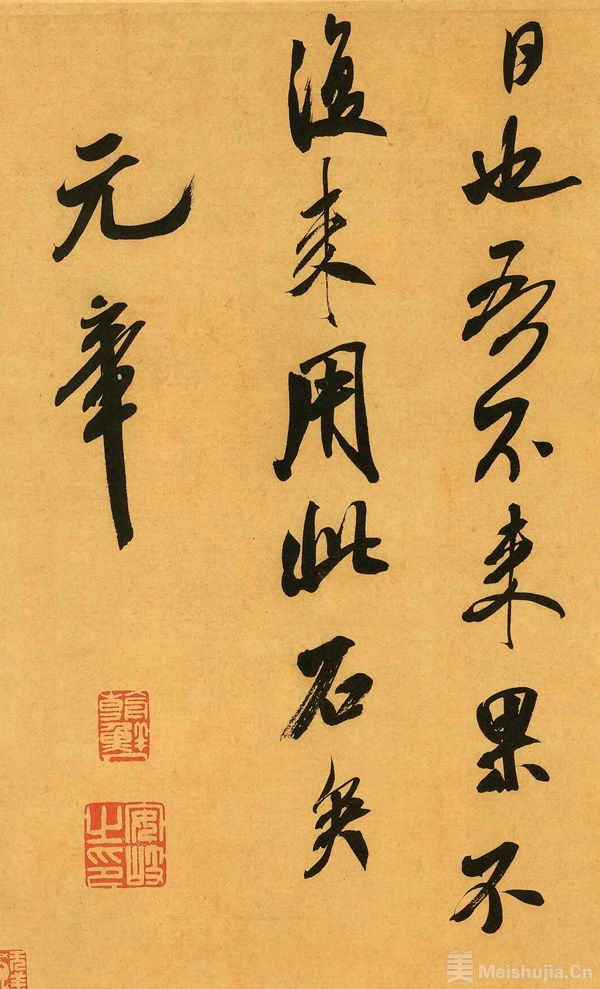 日也吾不来果不
復来用此石矣
元章
安岐
之印
美 Meishujia.Cn